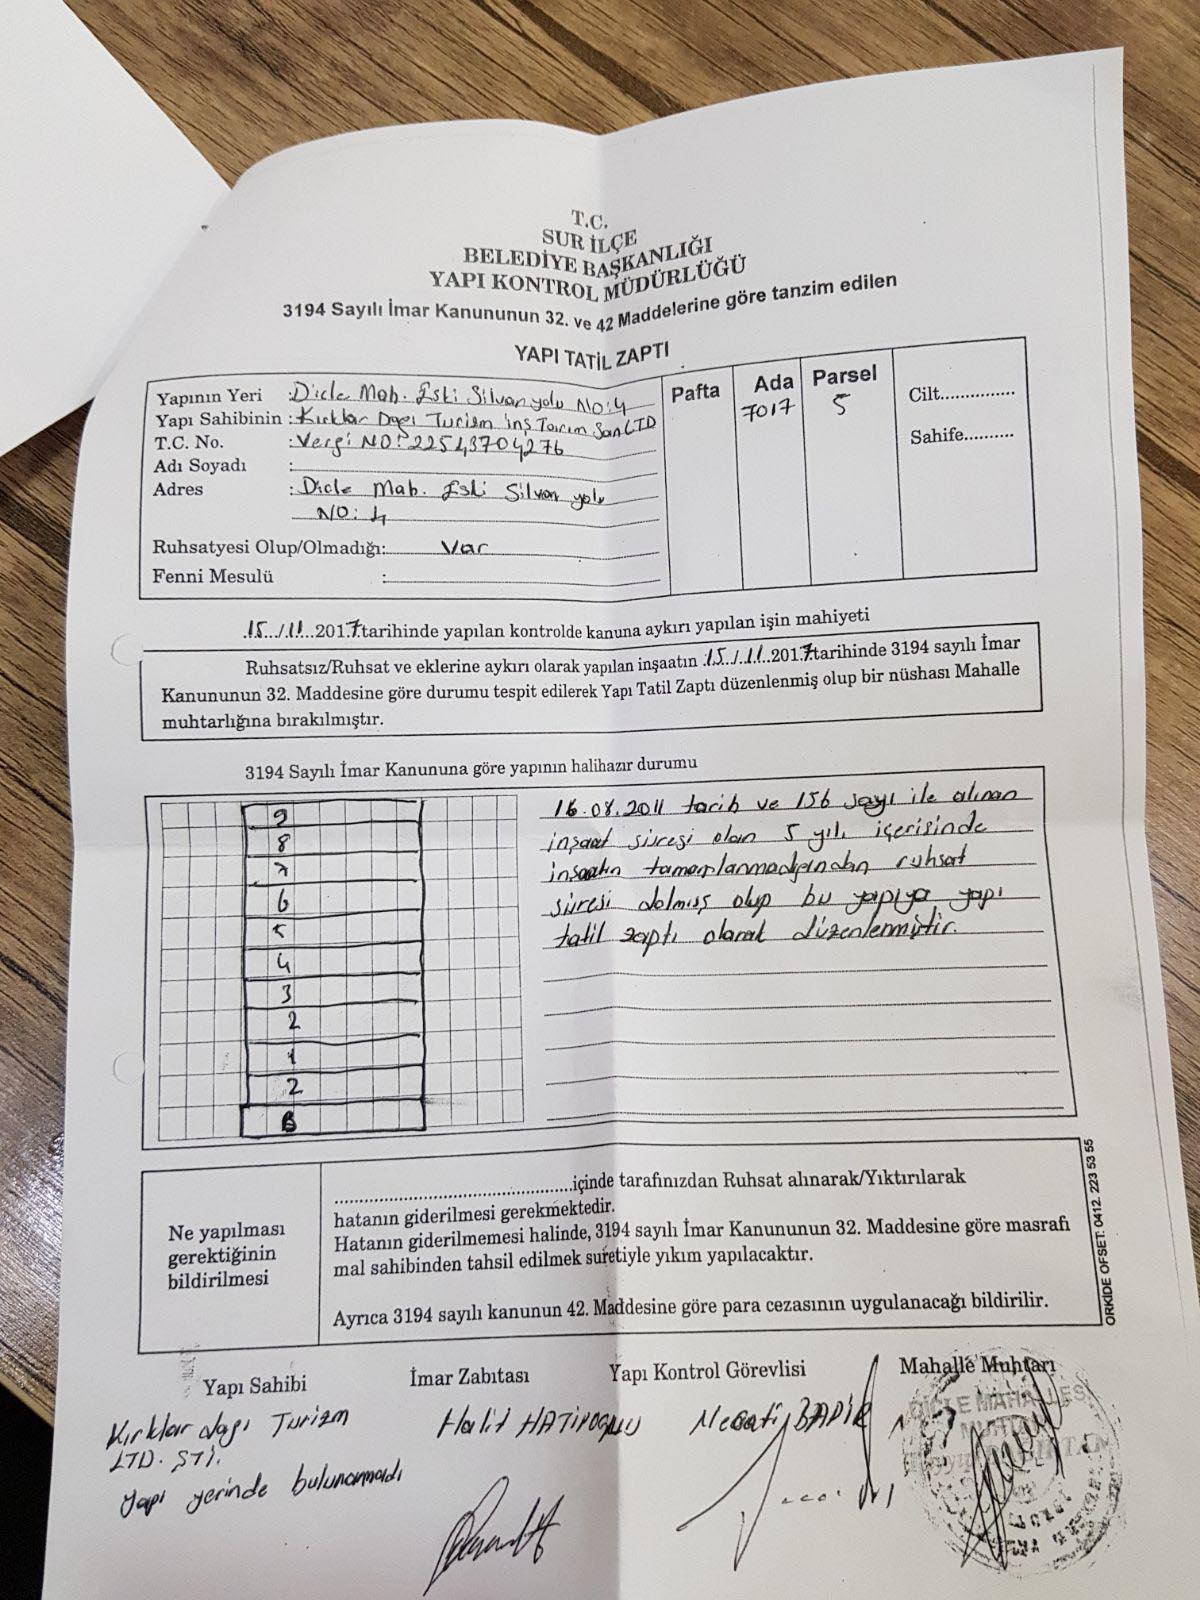 T.C.
SUR İLÇE
BELEDİYE BAŞKANLIĞI
YAPI KONTROL MÜDÜRLÜĞÜ
3194 Sayılı İmar Kanununun 32. ve 42 Maddelerine göre tanzim edilen
YAPI TATİL ZAPTI
Yapının Yeri :Dicle Mah. Eski Silvan yolu No:4
Yapı Sahibinin :Kırklar Dağı Turizm inş Tarım San LTD
T.C. No. :Vergi NO: 22543704276
Adı Soyadı :
Adres :Dicle Mah. Eski Silvan yolu
NO: 4
Ruhsatyesi Olup/Olmadığı: Var
Fenni Mesulü :
Pafta
Ada
7017
Parsel
5
Cilt...............
Sahife..........
15../11...2017tarihinde yapılan kontrolde kanuna aykırı yapılan işin mahiyeti
Ruhsatsız/Ruhsat ve eklerine aykırı olarak yapılan inşaatın 15../.11..2017tarihinde 3194 sayılı İmar
Kanununun 32. Maddesine göre durumu tespit edilerek Yapı Tatil Zaptı düzenlenmiş olup bir nüshası Mahalle
muhtarlığına bırakılmıştır.
3194 Sayılı İmar Kanununa göre yapının halihazır durumu
9
8
7
6
5
4
3
2
1
2
B
16.08.2011 tarih ve 156 sayı ile alınan
inşaat süresi olan 5 yılı içerisinde
inşaatın tamamlanmadığından ruhsat
süresi dolmuş olup bu yapıya yapı
tatil zaptı olarak düzenlenmiştir.
Ne yapılması
gerektiğinin
bildirilmesi
................................................içinde tarafınızdan Ruhsat alınarak/Yıktırılarak
hatanın giderilmesi gerekmektedir.
Hatanın giderilmemesi halinde, 3194 sayılı İmar Kanununun 32. Maddesine göre masrafı
mal sahibinden tahsil edilmek suretiyle yıkım yapılacaktır.
Ayrıca 3194 sayılı kanunun 42. Maddesine göre para cezasının uygulanacağı bildirilir.
ORKİDE OFSET: 0412. 223 53 55
Yapı Sahibi
Kırklar dağı Turizm
LTD. ŞTİ.
yapı yerinde bulunanmadı
İmar Zabıtası
Halit HATİPOĞLU
Yapı Kontrol Görevlisi
Necati BADİR
Mahalle Muhtarı
DİCLE MAHALLESİ